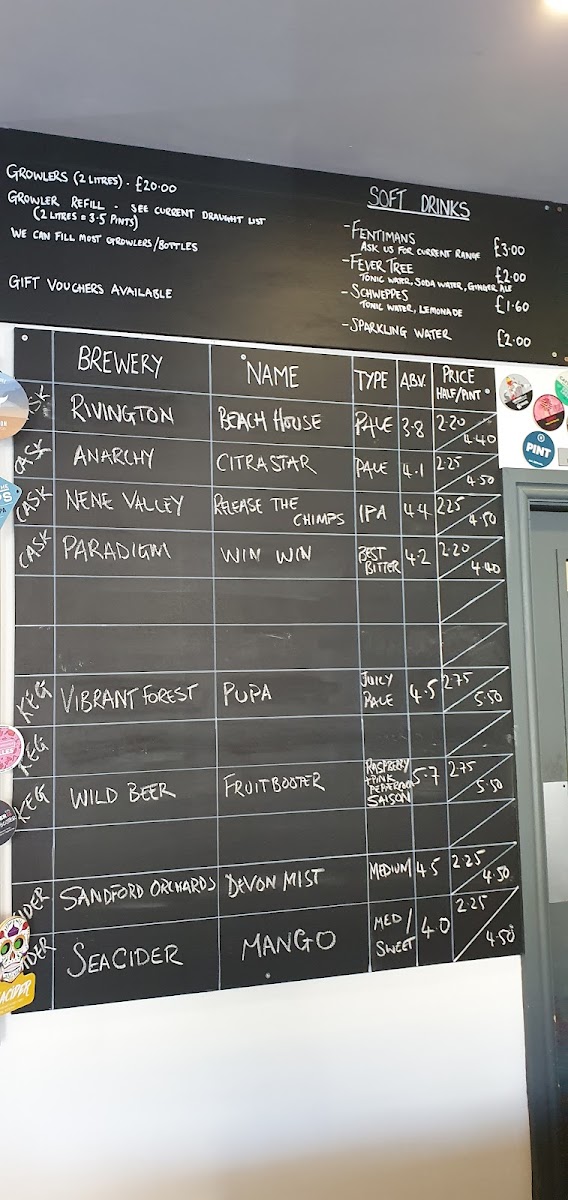 GROWLERS (2 LITRES) - £20.00
GROWLER REFILL - SEE CURRENT DRAUGHT LIST
(2 LITRES = 3.5 PINTS)
WE CAN FILL MOST GROWLERS/BOTTLES
GIFT VOUCHERS AVAILABLE
SOFT DRINKS
- FENTIMANS £3.00
ASK US FOR CURRENT RANGE
- FEVER TREE £2.00
TONIC WATER, SODA WATER, GINGER ALE
- SCHWEPPES £1.60
TONIC WATER, LEMONADE
- SPARKLING WATER £2.00
BREWERY NAME TYPE ABV. PRICE HALF/PINT
CASK RIVINGTON BEACH HOUSE PALE 3.8 2.20/4.40
CASK ANARCHY CITRA STAR PALE 4.1 2.25/4.50
CASK NENE VALLEY RELEASE THE CHIMPS IPA 4.4 2.25/4.50
CASK PARADIGM WIN WIN BEST BITTER 4.2 2.20/4.40
KEG VIBRANT FOREST PUPA JUICY PALE 4.5 2.75/5.50
KEG
KEG WILD BEER FRUITBOOTER RASPBERRY + PINK PEPPERCORN SAISON 5.7 2.75/5.50
CIDER SANDFORD ORCHARDS DEVON MIST MEDIUM 4.5 2.25/4.50
CIDER SEACIDER MANGO MED/SWEET 4.0 2.25/4.50
PINT